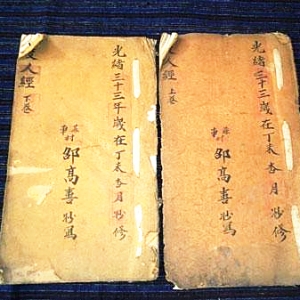 光緒三十三年歲在丁未杏月抄修
庄村
邵高壽抄寫
人經下卷
光緒三十三歲在丁未杏月抄修
邵高壽抄寫
人經上卷